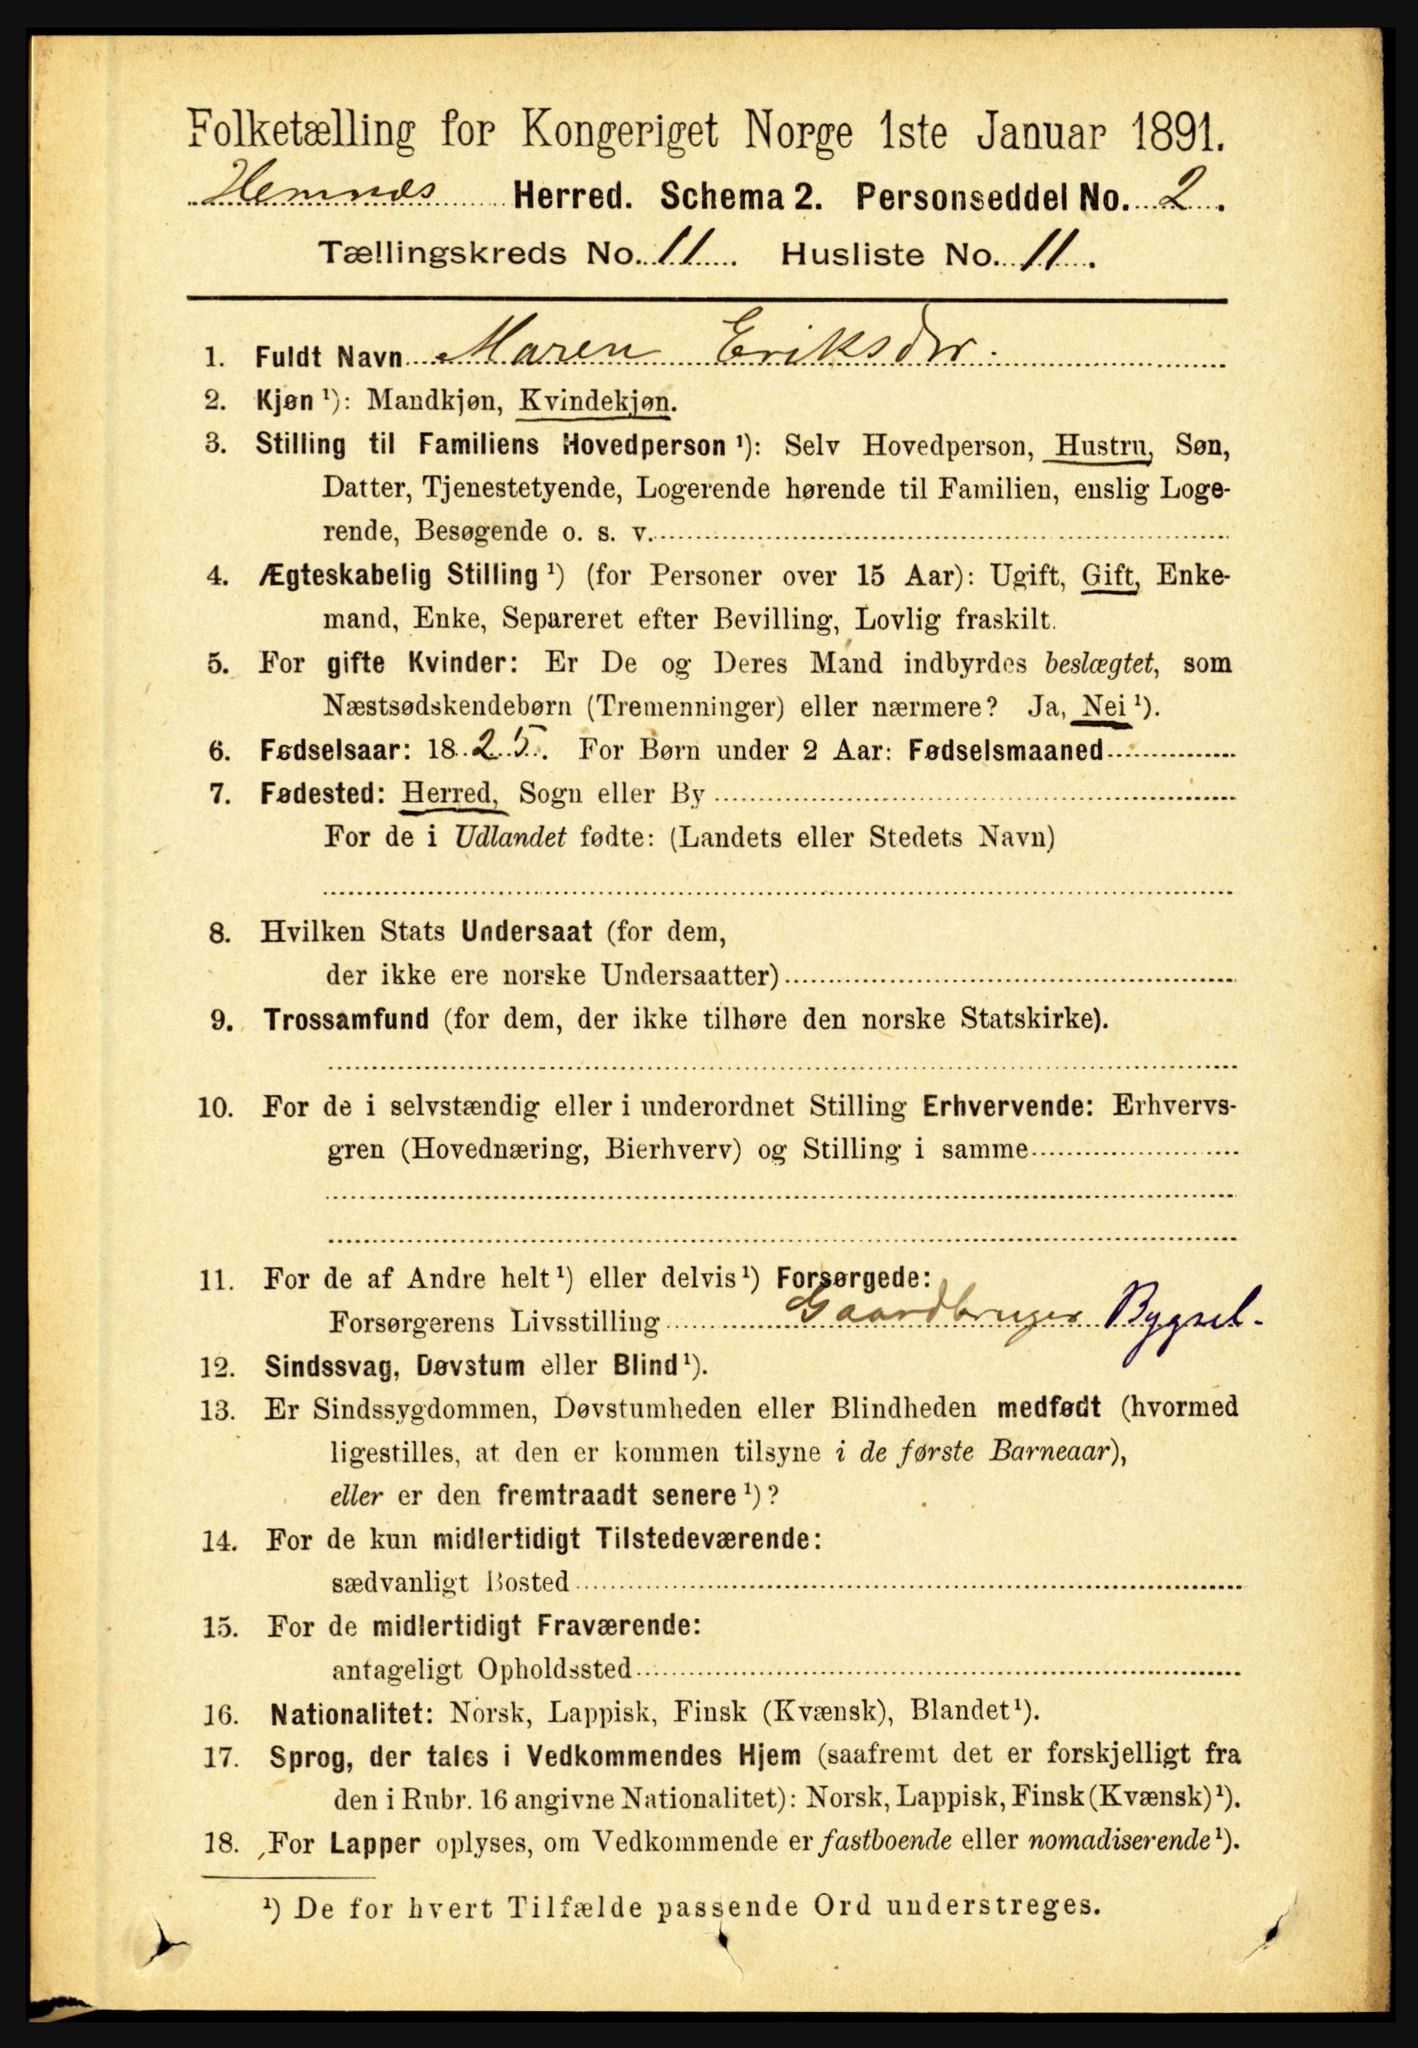 Folketælling for Kongeriget Norge 1ste Januar 1891.
Hemnæs Herred. Schema 2. Personseddel No. 2.
Tællingskreds No. 11. Husliste No. 11.
1. Fuldt Navn Maren Eriksdtr.
2. Kjøn ¹): Mandkjøn, Kvindekjøn.
3. Stilling til Familiens Hovedperson ¹): Selv Hovedperson, Hustru, Søn,
Datter, Tjenestetyende, Logerende hørende til Familien, enslig Loge-
rende, Besøgende o. s. v.
4. Ægteskabelig Stilling ¹) (for Personer over 15 Aar): Ugift, Gift, Enke-
mand, Enke, Separeret efter Bevilling, Lovlig fraskilt.
5. For gifte Kvinder: Er De og Deres Mand indbyrdes beslægtet, som
Næstsødskendebørn (Tremenninger) eller nærmere? Ja, Nei ¹).
6. Fødselsaar: 1825. For Børn under 2 Aar: Fødselsmaaned
7. Fødested: Herred, Sogn eller By
For de i Udlandet fødte: (Landets eller Stedets Navn)
8. Hvilken Stats Undersaat (for dem,
der ikke ere norske Undersaatter)
9. Trossamfund (for dem, der ikke tilhøre den norske Statskirke).
10. For de i selvstændig eller i underordnet Stilling Erhvervende: Erhvervs-
gren (Hovednæring, Bierhverv) og Stilling i samme
11. For de af Andre helt ¹) eller delvis ¹) Forsørgede:
Forsørgerens Livsstilling Gaardbruger Bygsel.
12. Sindssvag, Døvstum eller Blind ¹).
13. Er Sindssygdommen, Døvstumheden eller Blindheden medfødt (hvormed
ligestilles, at den er kommen tilsyne i de første Barneaar),
eller er den fremtraadt senere ¹)?
14. For de kun midlertidigt Tilstedeværende:
sædvanligt Bosted
15. For de midlertidigt Fraværende:
antageligt Opholdssted
16. Nationalitet: Norsk, Lappisk, Finsk (Kvænsk), Blandet ¹).
17. Sprog, der tales i Vedkommendes Hjem (saafremt det er forskjelligt fra
den i Rubr. 16 angivne Nationalitet): Norsk, Lappisk, Finsk (Kvænsk) ¹).
18. For Lapper oplyses, om Vedkommende er fastboende eller nomadiserende ¹).
¹) De for hvert Tilfælde passende Ord understreges.